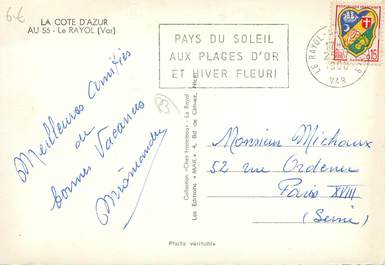 6€
LA COTE D'AZUR
AU 56 - Le RAYOL (Var)
PAYS DU SOLEIL
AUX PLAGES D'OR
ET HIVER FLEURI
LE RAYOL
VAR
15
Meilleures Amitiés
de
bonnes Vacances
83
Collection «Chez Francesco» - Le Rayol
Les Editions « MAR » 4, Bd de Cimiez, Nice
Monsieur Michaux
52 rue Ordener
Paris XVIII
(Seine)
Photo véritable